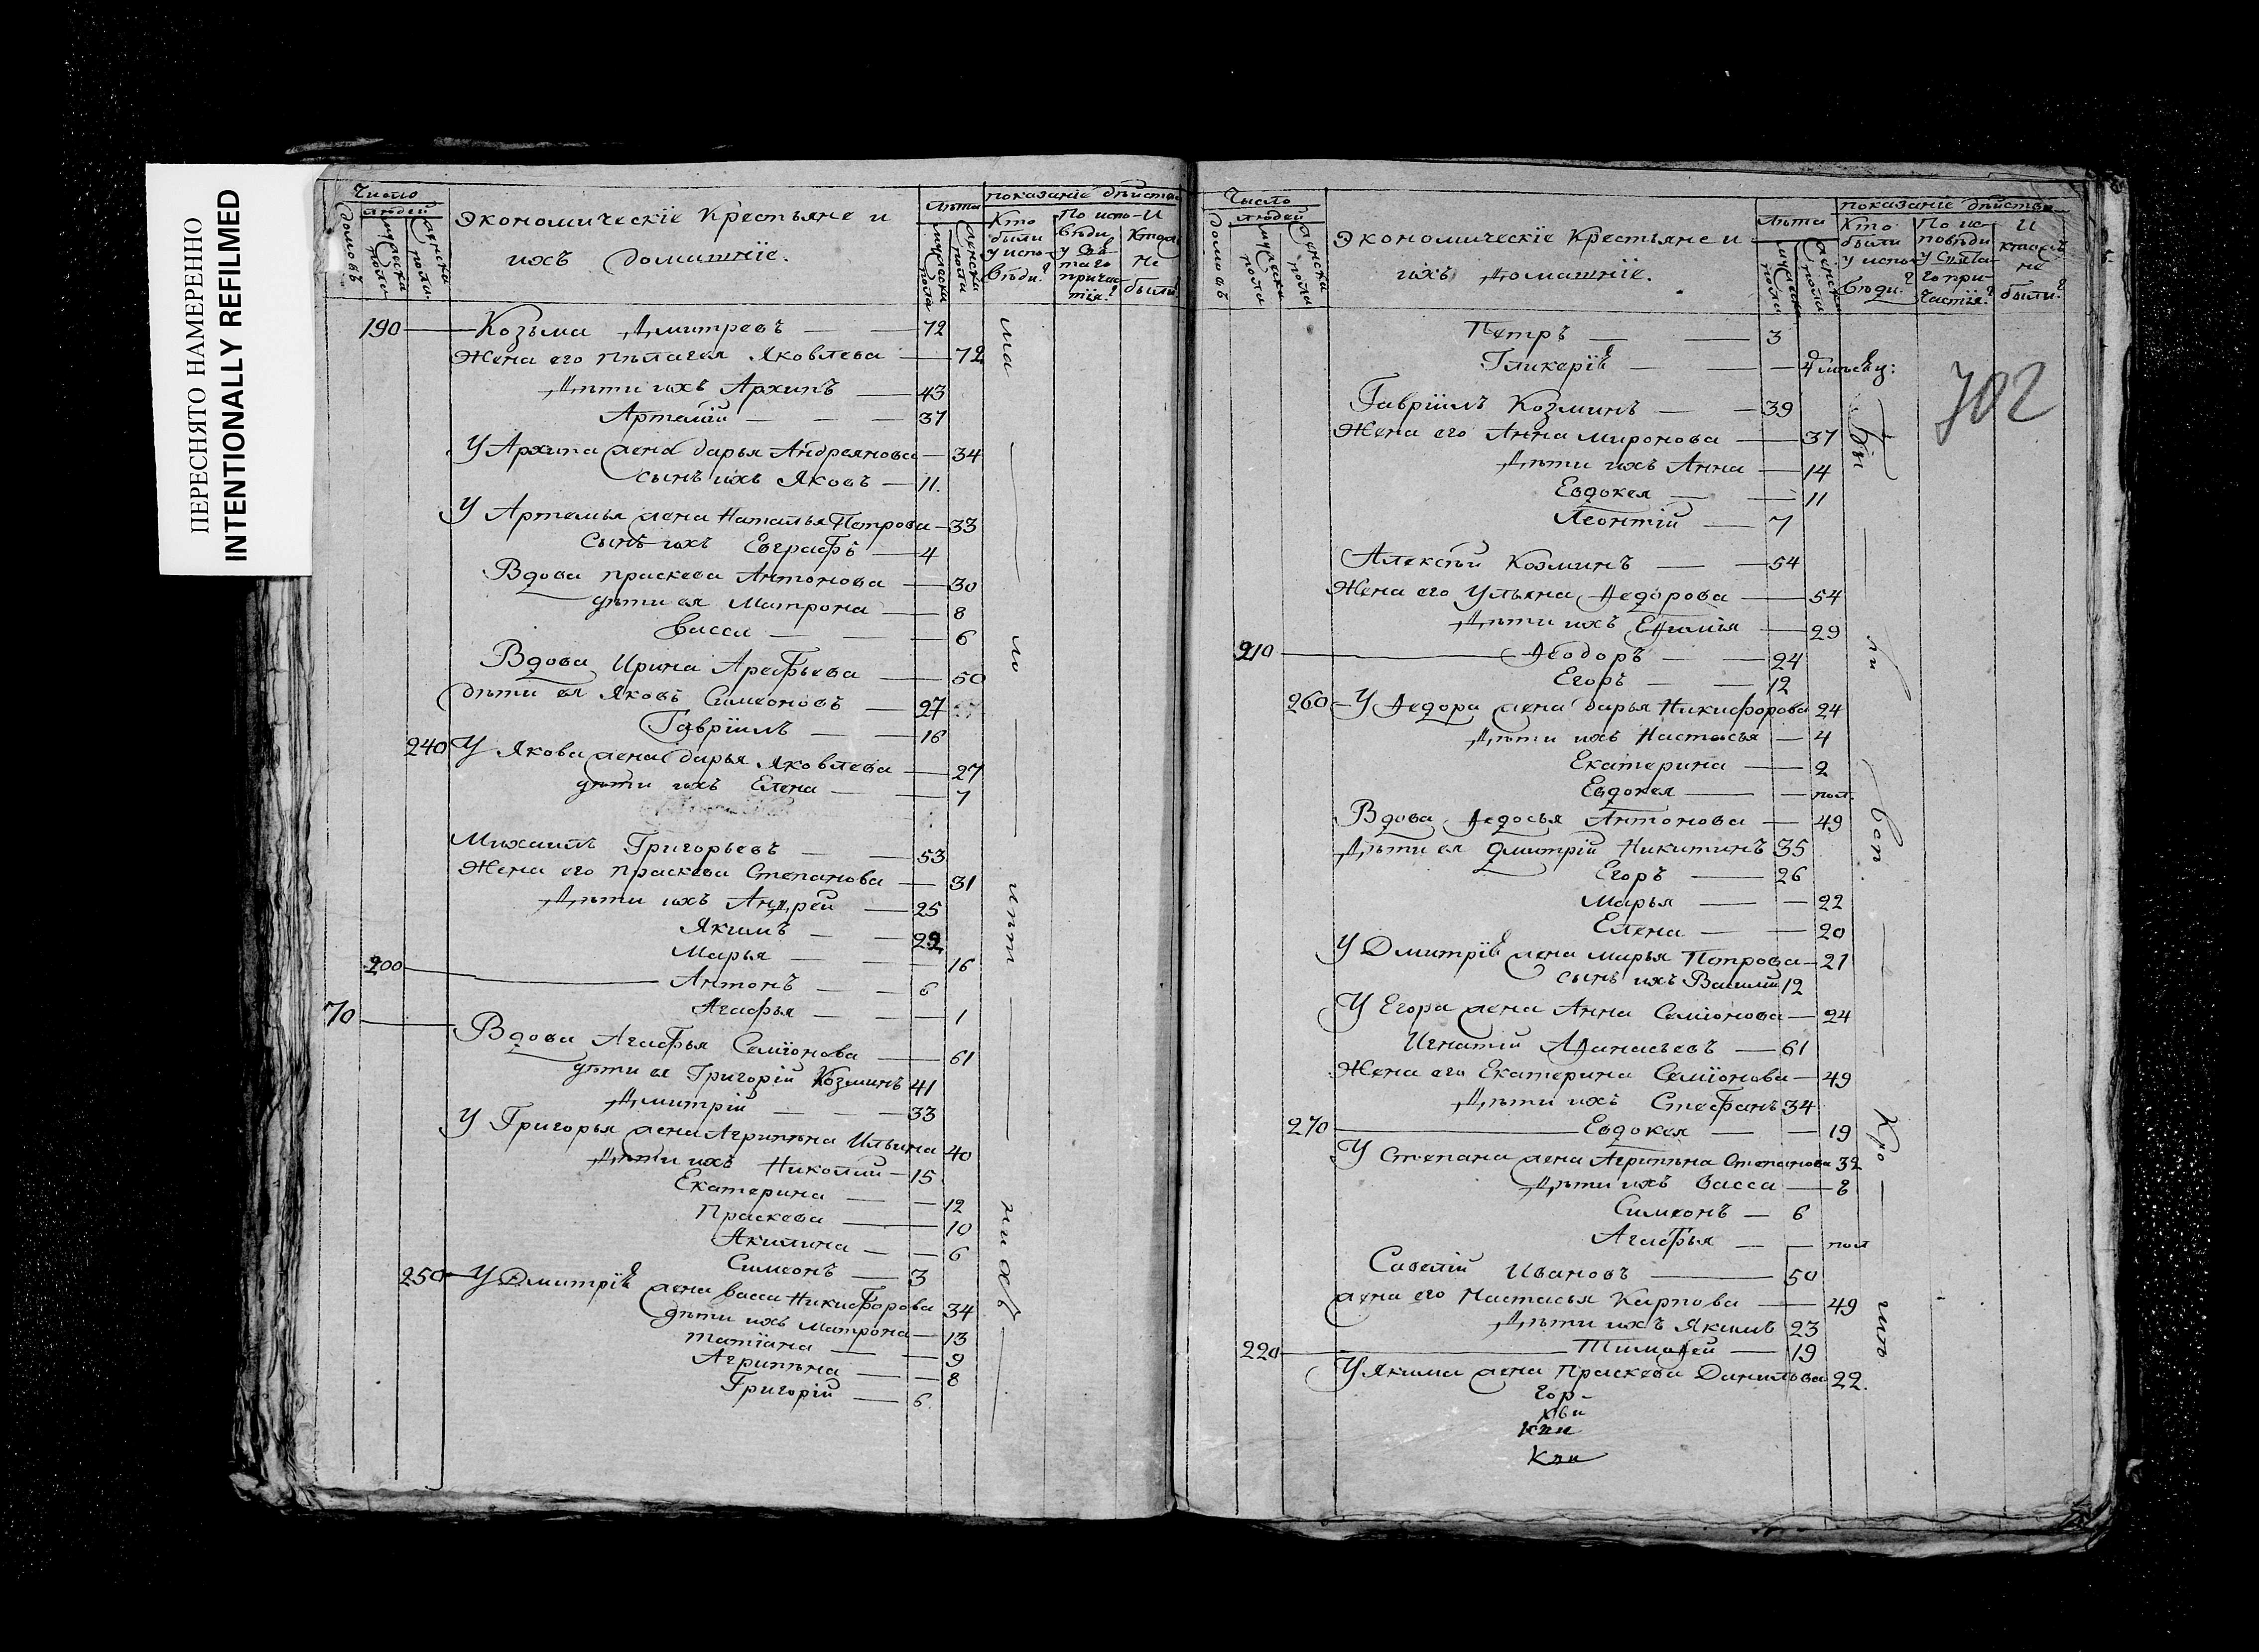 ПЕРЕСНЯТО НАМЕРЕННО
INTENTIONALLY REFILMED
Число
людей
домовъ
мужеска пола
женска пола
Экономическïе Крестьяне и
ихъ домашнïе.
Лѣта
мужеска пола
женска пола
показанïе дѣйства
Кто были у испо-вѣди?
По испо-вѣди, у Свя таго причас тïя?
И Кто же не были?
190 Козьма Дмитревъ 72
Жена его Пѣлагея Яковлева 72
Дѣти ихъ Архипъ 43
Артемïй 37
У Архипа жена дарья Андреянова 34
сынъ ихъ Яковъ 11.
У Артемья жена Наталья Петрова 33
Сынъ ихъ Евграфъ 4
Вдова праскева Антонова 30
дѣти ея Матрона 8
Васса 6
Вдова Ирина Арефьева 50
дѣти ея Яковъ Симеоновъ 27
Гаврïилъ 16
240 У Якова жена дарья Яковлева 27
дѣти ихъ Елена 7
Михаилъ Григорьевъ 53
Жена его праскева Степанова 31
Дѣти ихъ Андрей 25
Якимъ 22
Марья 16
200 Антонъ 6
Агафья 1
70 Вдова Агафья Семïонова 61
дѣти ея Григорïй Козминъ 41
Дмитрïй 33
У Григорья жена Агрипѣна Ильина 40
Дѣти ихъ Николай 15
Екатерина 12
Праскева 10
Акилина 6
Симеонъ 3
250 У Дмитрïя жена васса Никифорова 34
дѣти ихъ Матрона 13
Татïана 9
Агрипѣна 8
Григорïй 6.
Число
людей
домовъ
мужеска пола
женска пола
Экономическïе Крестьяне и
ихъ Домашнïе.
Лѣта
мужеска пола
женска пола
показанïе дѣйства
Кто были у испо вѣди?
По ис-повѣди у Свята-го при-частïя?
И кто жъ не были?
702
Петръ 3
Гликерïя 4 мѣсяц:
Гаврïилъ Козминъ 39
Жена его Анна Миронова 37
Дѣти ихъ Анна 14
Евдокея 11
Леонтïй 7
Алексѣй Козминъ 54
Жена его Ульяна Федорова 54
Дѣти ихъ Ефимïя 29
210 Феодоръ 24
Егоръ 12
260 У Федора жена дарья Никифорова 24
Дѣти ихъ Настасья 4
Екатерина 2
Евдокея пол.
Вдова Федосья Антонова 49
Дѣти ея Дмитрïй Никитинъ 35
Егоръ 26
Марья 22
Елена 20
У Дмитрïя жена марья Петрова 21
сынъ ихъ Василïй 12
У Егора жена Анна Семïонова 24
Игнатïй Афанасьевъ 61
Жена его Екатерина Семïонова 49
Дѣти ихъ Стефанъ 34
270 Евдокея 19
У Степана жена Агрипѣна Степанова 32
Дѣти ихъ Васса 8
Симеонъ 6
Агафья пол
Савелïй Ивановъ 50
жена его Настасья Карпова 49
Дѣти ихъ Якимъ 23
220 Тимофей 19
У Якима жена Праскева Данилова 22.